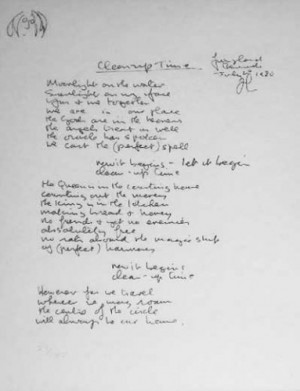 Cleanup Time
July 1980
Moonlight on the water
Sunlight on my face
You & me together
we are in our place
the Gods are in the heavens
the angels treat us well
the oracle has spoken
we cast the (perfect) spell
now it begins - let it begin
clean-up time
the Queen is in the counting house
counting out the money
the King is in the kitchen
making bread & honey
no friends & yet no enemies
absolutely free
no rats aboard the magic ship
of (perfect) harmony
now it begins
clean-up time
However far we travel
wherever we may roam
the centre of the circle
will always be our home.